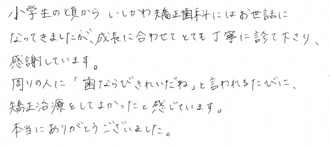 小学生の頃から いしかわ矯正歯科にはお世話に
なってきましたが、成長に合わせてとても丁寧に診て下さり、
感謝しています。
周りの人に「歯ならびきれいだね」と言われるたびに、
矯正治療をしてよかったと感じています。
本当にありがとうございました。